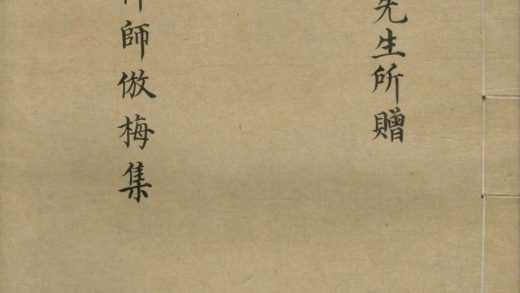 先生所贈
師倣梅集